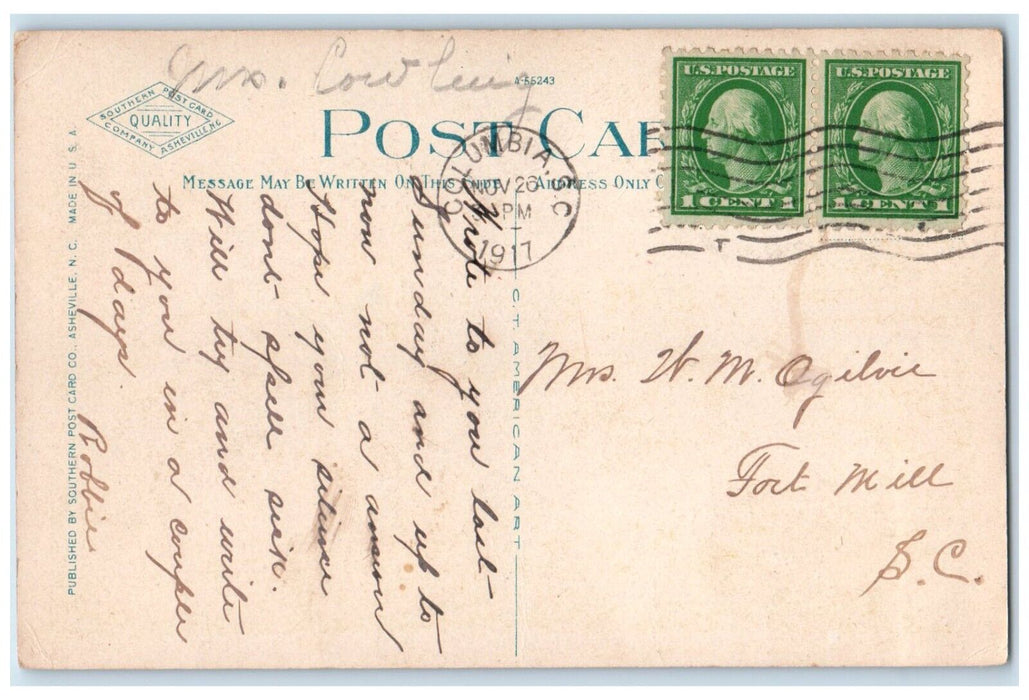 Mrs. Cowling
A-55243
SOUTHERN POST CARD
QUALITY
COMPANY ASHEVILLE, N.C.
POST CAR
MESSAGE MAY BE WRITTEN ON THIS SIDE
ADDRESS ONLY O
U.S. POSTAGE
1 CENT 1
U.S. POSTAGE
1 CENT 1
COLUMBIA, S.C.
NOV 26
PM
1917
Wrote to you last
Sunday and up to
now not a answer
Hope your silence
dont spell sick.
Will try and write
to you in a couple
of days.
Robbie
Mrs. W. M. Ogilvie
Fort Mill
S.C.
C.T. AMERICAN ART
PUBLISHED BY SOUTHERN POST CARD CO., ASHEVILLE, N. C. MADE IN U. S. A.